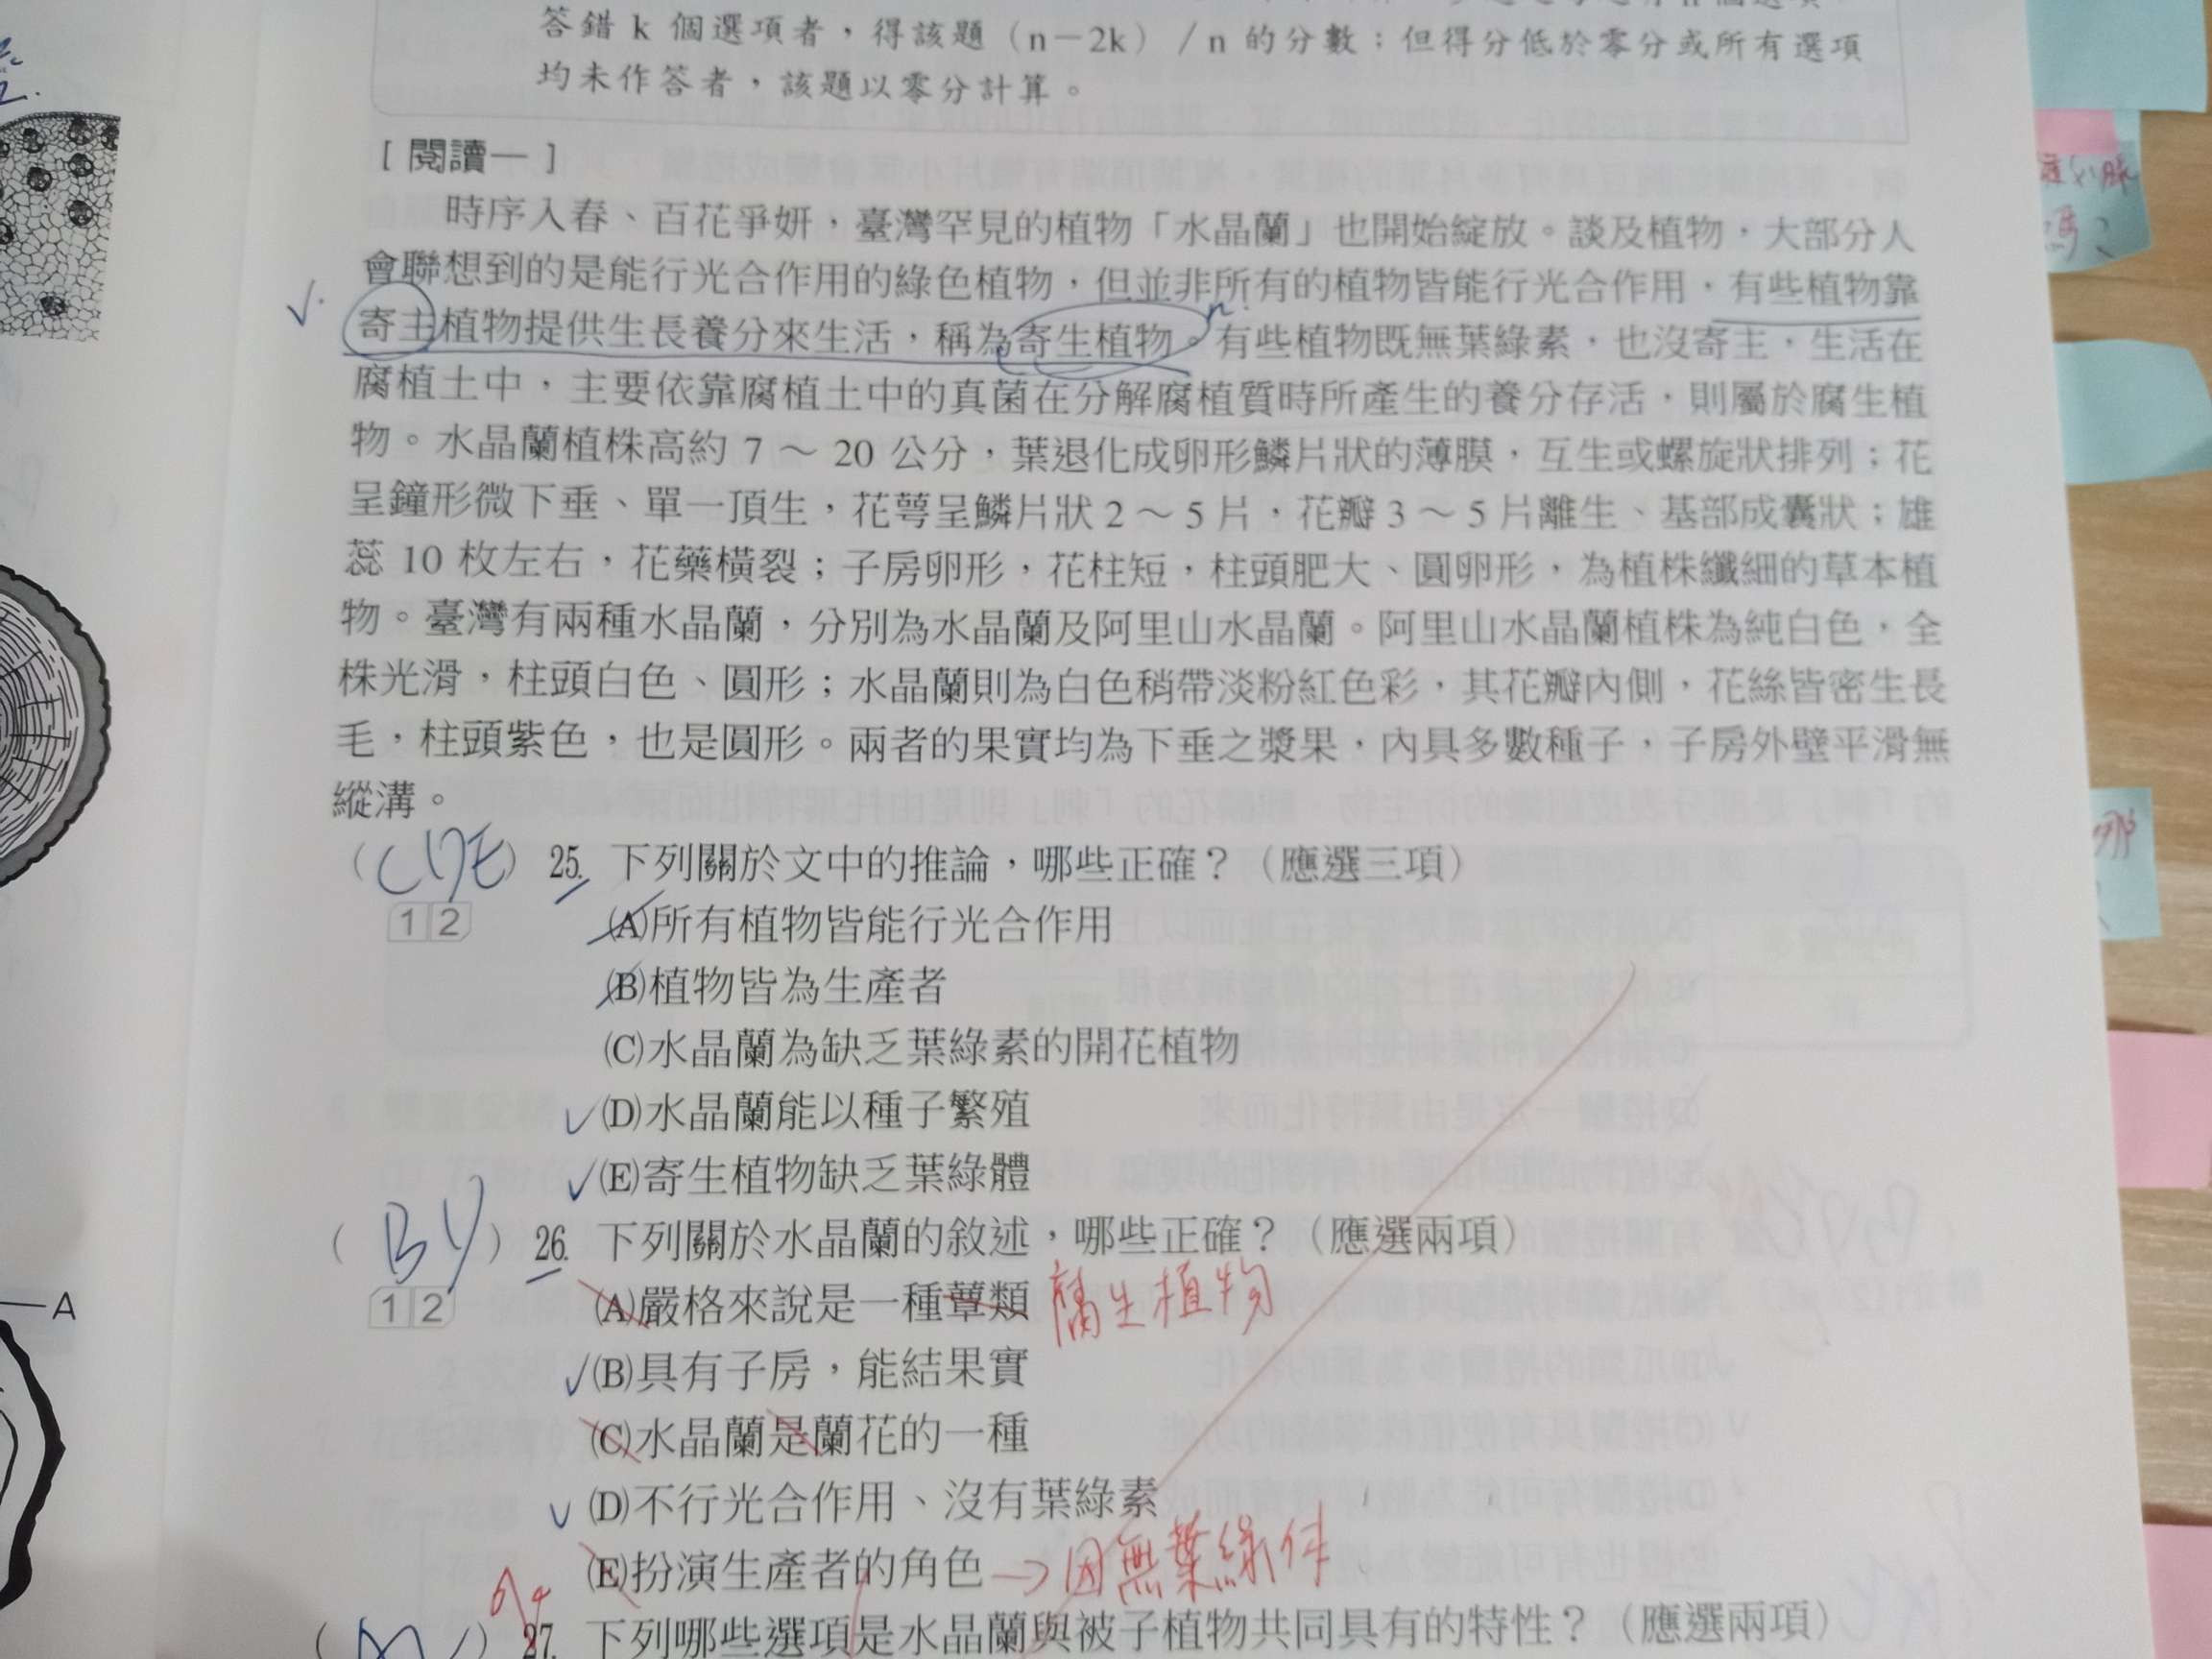 答錯 k 個選項者,得該題(n-2k)/n 的分數;但得分低於零分或所有選項
均未作答者,該題以零分計算。
[閱讀一]
時序入春、百花爭妍,臺灣罕見的植物「水晶蘭」也開始綻放。談及植物,大部分人
會聯想到的是能行光合作用的綠色植物,但並非所有的植物皆能行光合作用,有些植物靠
寄主植物提供生長養分來生活,稱為寄生植物。有些植物既無葉綠素,也沒寄主,生活在
腐植土中,主要依靠腐植土中的真菌在分解腐植質時所產生的養分存活,則屬於腐生植
物。水晶蘭植株高約 7～20 公分,葉退化成卵形鱗片狀的薄膜,互生或螺旋狀排列;花
呈鐘形微下垂、單一頂生,花萼呈鱗片狀 2～5 片,花瓣 3～5 片離生、基部成囊狀;雄
蕊 10 枚左右,花藥橫裂;子房卵形,花柱短,柱頭肥大、圓卵形,為植株纖細的草本植
物。臺灣有兩種水晶蘭,分別為水晶蘭及阿里山水晶蘭。阿里山水晶蘭植株為純白色,全
株光滑,柱頭白色、圓形;水晶蘭則為白色稍帶淡粉紅色彩,其花瓣內側,花絲皆密生長
毛,柱頭紫色,也是圓形。兩者的果實均為下垂之漿果,內具多數種子,子房外壁平滑無
縱溝。
(CDE) 25. 下列關於文中的推論,哪些正確?(應選三項)
1 2
(A)所有植物皆能行光合作用
(B)植物皆為生產者
(C)水晶蘭為缺乏葉綠素的開花植物
(D)水晶蘭能以種子繁殖
(E)寄生植物缺乏葉綠體
(BD) 26. 下列關於水晶蘭的敘述,哪些正確?(應選兩項)
1 2
(A)嚴格來說是一種蕈類 腐生植物
(B)具有子房,能結果實
(C)水晶蘭是蘭花的一種
(D)不行光合作用、沒有葉綠素
(E)扮演生產者的角色→因無葉綠体
27. 下列哪些選項是水晶蘭與被子植物共同具有的特性?(應選兩項)
A